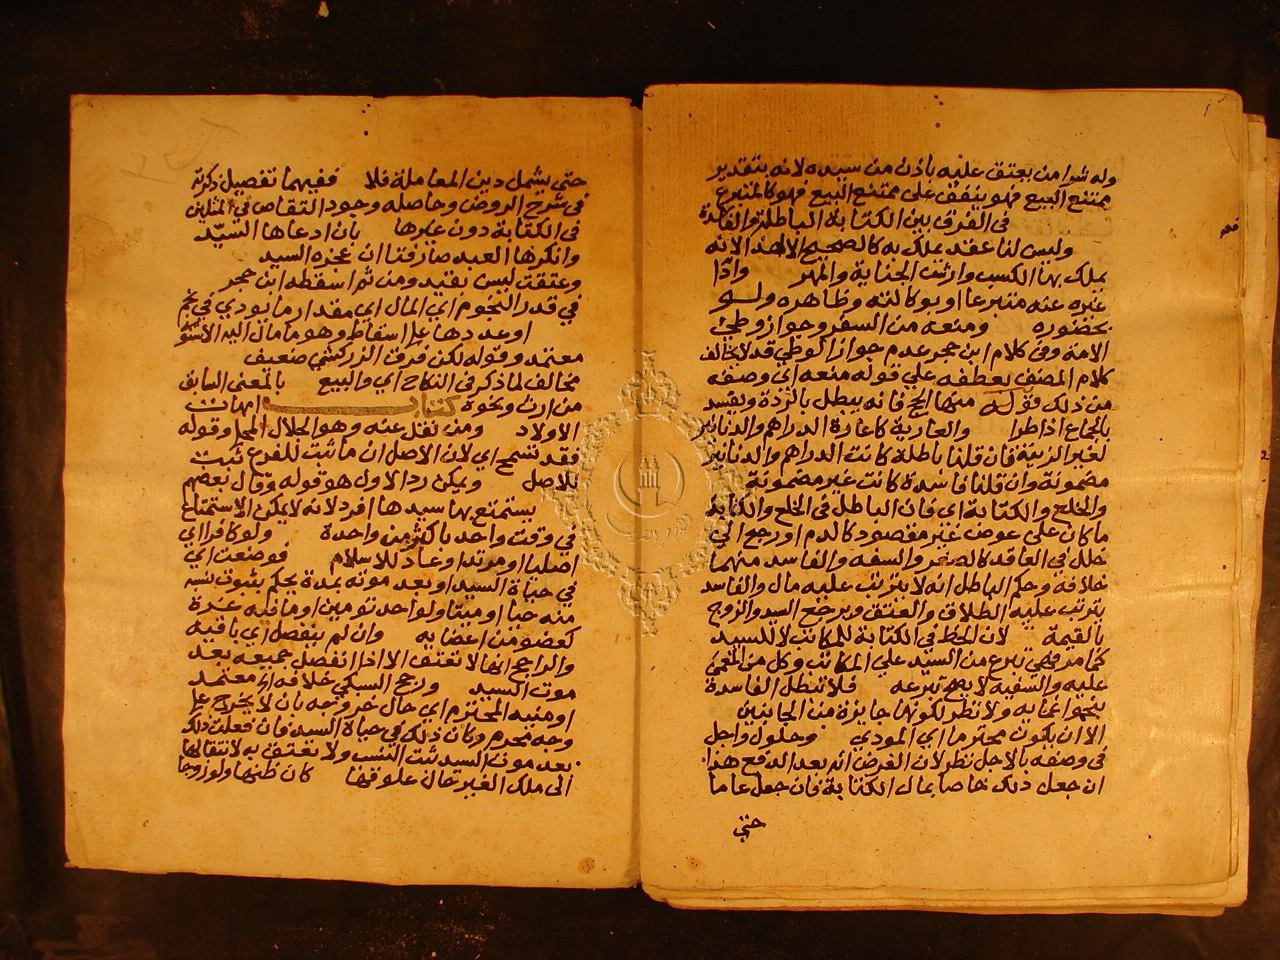 وله شرا من يعتق عليه باذن من سيده لانه بتقدير
ممتنع البيع فهو ينفق على ممتنع البيع فهو كالمتبرع
في الفرق بين الكتابة الباطلة والفاسدة
وليس لنا عقد يملك به كالصحيح الا هذا لانه
يملك بها الكسب وارش الجناية والمهر واذا
غيره عنه متبرعا او بوكالته وظاهره ولو
بحضوره ومنعه من السفر وجواز وطئ
الامة وفي كلام ابن حجر عدم جواز الوطي قد لا يخالف
كلام المصنف بعطفه على قوله منعه اي وصفه
من ذلك قوله منها الحج فانه يبطل بالردة ويفسد
بالجماع اذا طرا والعارية كاعارة الدراهم والدنانير
لغير الزينة فان قلنا باطلة كانت الدراهم والدنانير
مضمونة وان قلنا فاسدة كانت غير مضمونة
والخلع والكتابة اي فان الباطل في الخلع والكتابة
ما كان على عوض غير مقصود كالدم او رجع الي
خلل في العاقد كالصغر والسفه والفاسد منهما
خلافه وحكم الباطل انه لا يترتب عليه مال والفاسد
يترتب عليه الطلاق والعتق ويرجع السيد والزوج
بالقيمة لان الحظ في الكتابة للمكاتب لا للسيد
كما مر فهي تبرع من السيد علي المكاتب وكل من المغمي
عليه والسفيه لا يصح تبرعه فلا تبطل الفاسدة
بنحو اغمايه ولا نظر لكونها جايزة من الجانبين
الا ان يكون محترما اي المودي وحلول واجل
في وصفه بالاجل نظر لان الفرض انه بعد الدفع هذا
ان جعل ذلك خاصا بمال الكتابة فان جعل عاما
حتي
حتي يشمل دين المعاملة فلا ففيهما تفصيل ذكرته
في شرح الروض وحاصله وجود التقاص في المثلين
في الكتابة دون غيرها بان ادعاها السيد
وانكرها العبد صار فتا ان عجزه السيد
وعتقت ليس بقيد ومن ثم اسقطه ابن حجر
في قدر النجوم اي المال اي مقدار ما يودي في نجم
او عددها علي اسقاط وهو ما مال اليه الاسنو
معتمد وقوله لكن فرق الزركشي ضعيف
مخالف لما ذكر في النكاح اي والبيع بالمعني السابق
من ارث ونحوه كتاب امهات
الاولاد ومن نقل عنه وهو الجلال المحلي وقوله
فقد تسمح اي لان الاصل ان ما ثبت للفرع ثبت
للاصل ويمكن رد الاول هو قوله وقال بعضهم
يستمتع بها سيدها افرد لانه لا يمكن الاستمتاع
في وقت واحد باكثر من واحدة ولو كافرا اي
اصليا او مرتدا وعاد للاسلام فوضعت اي
في حياة السيد او بعد موته بمدة يحكم بثبوت نسبه
منه حيا او ميتا ولو احد توامين او ما فيه غرة
كعضو من اعضايه وان لم ينفصل اي باقيه
والراجح انها لا تعتق الا اذا انفصل جميعه بعد
موت السيد ورجح السبكي خلافه معتمد
او منيه المحترم اي حال خروجه بان لا يخرج علي
وجه محرم وكان ذلك في حياة السيد فان فعلت ذلك
بعد موت السيد ثبت النسب ولا تعتق به لانتقالها
الى ملك الغير حال علوقها كان ظنها ولو زوجا